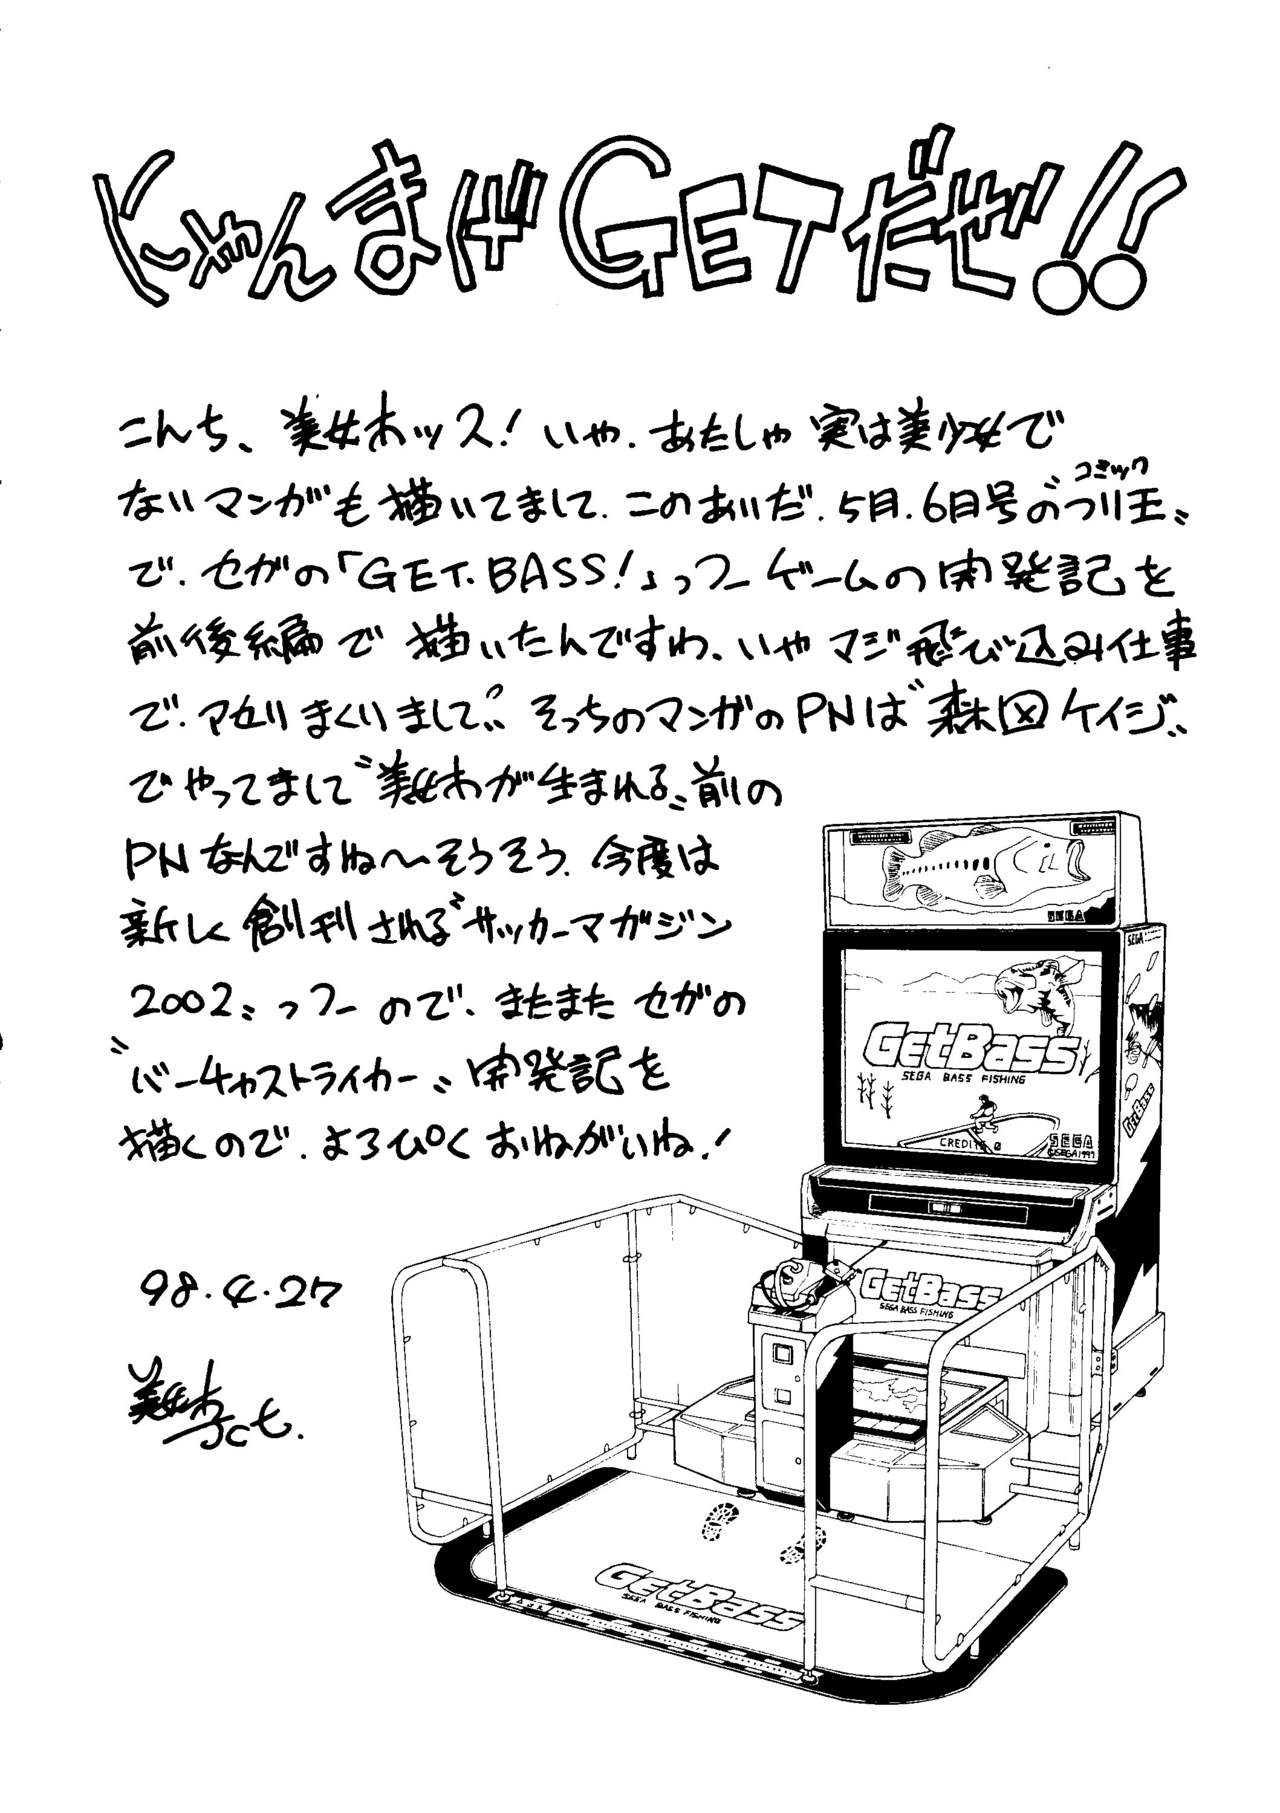 にゃんまげGETだぜ!!
こんち、美女木ッス! いや、あたしゃ 実は美少女で
コミック
ないマンガも描いてまして、このあいだ、5月、6月号の〝つり王〟
で、セガの「GET BASS!」っつーゲームの開発記を
前後編で描いたんですわ、いやマジ飛び込み仕事
で、アセりまくりまして。そっちのマンガのPNは〝森図ケイジ〟
でやってまして〝美女木が生まれる〟前の
PNなんですね〜そうそう、今度は
新しく創刊される〝サッカーマガジン
2002〟っつーのでまたまたセガの
〝バーチャストライカー〟開発記を
描くので、よろぴくおねがいね!
SEGA
SEGA
GetBass
SEGA BASS FISHING
CREDITS 0
SEGA
©SEGA 1997
GetBass
98.4.27
GetBass
SEGA BASS FISHING
美女木Jct.
GetBass
SEGA BASS FISHING